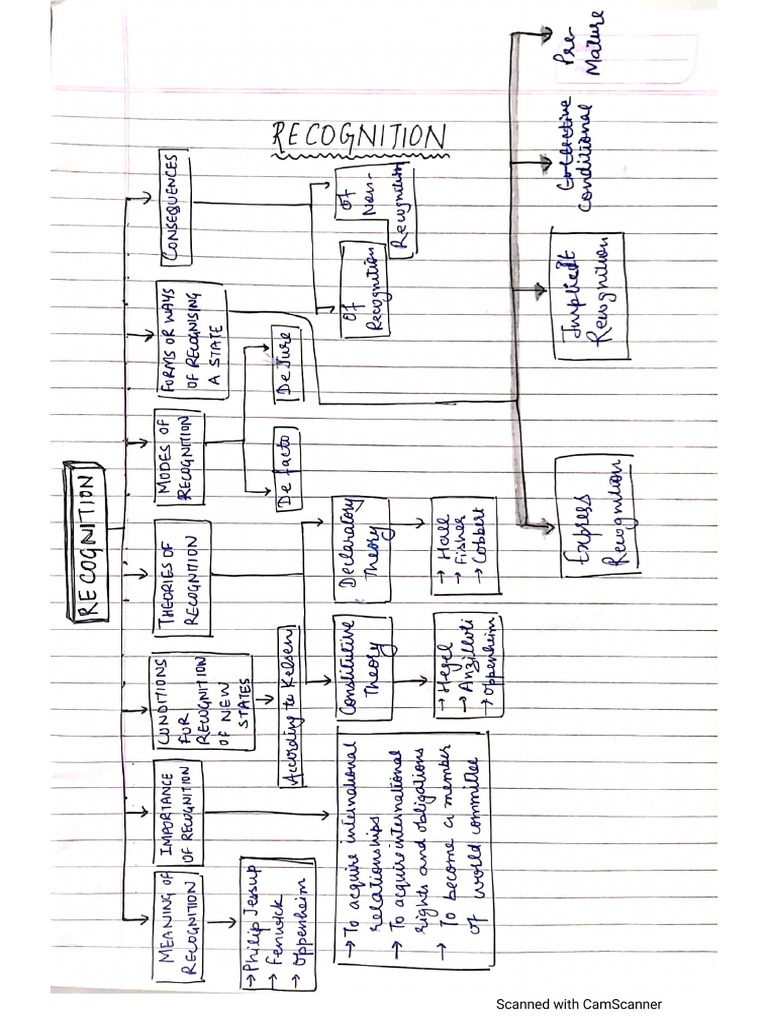 RECOGNITION
RECOGNITION
MEANING OF
RECOGNITION
→ Philip Jessup
→ Fenwick
→ Oppenheim
IMPORTANCE
OF RECOGNITION
→ To acquire international
relationships
→ To acquire international
rights and obligations
→ To become a member
of world committee
CONDITIONS
FOR
RECOGNITION
OF NEW
STATES
According to Kelsen
THEORIES OF
RECOGNITION
Constitutive
Theory
→ Hegel
→ Anzilloti
→ Oppenheim
Declaratory
Theory
→ Hall
→ Fisher
→ Cobbert
MODES OF
RECOGNITION
De facto
De Jure
FORMS OR WAYS
OF RECOGNISING
A STATE
Express
Recognition
Implied
Recognition
Collective
Conditional
Pre-
Mature
CONSEQUENCES
Of
Recognition
Of
Non-
Recognition
Scanned with CamScanner